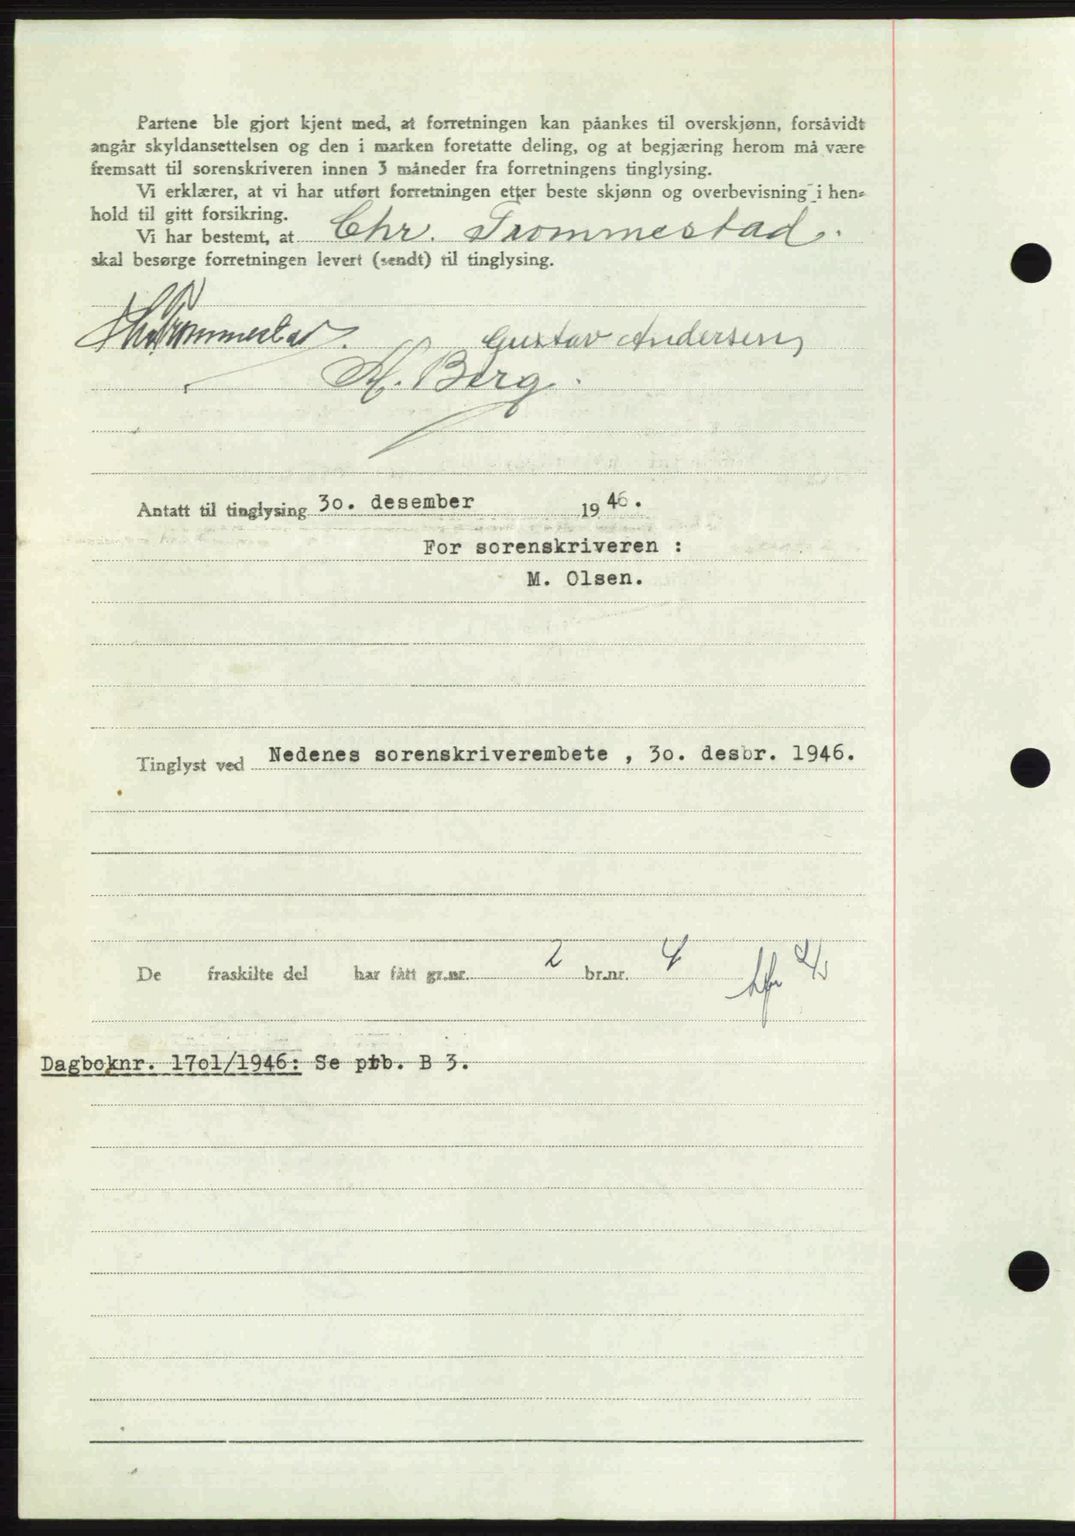 Partene ble gjort kjent med, at forretningen kan påankes til overskjønn, forsåvidt
angår skyldansettelsen og den i marken foretatte deling, og at begjæring herom må være
fremsatt til sorenskriveren innen 3 måneder fra forretningens tinglysing.
Vi erklærer, at vi har utført forretningen etter beste skjønn og overbevisning i hen-
hold til gitt forsikring.
Vi har bestemt, at Chr. Trommestad.
skal besørge forretningen levert (sendt) til tinglysing.
Chr Trommestad. Gustav Andersen,
Berg.
Antatt til tinglysing 30. desember 1946.
For sorenskriveren :
M. Olsen.
Tinglyst ved Nedenes sorenskriverembete , 30. desbr. 1946.
De fraskilte del har fått gr.nr. 2 br.nr. 4
Dagboknr. 1701/1946: Se ptb. B 3.